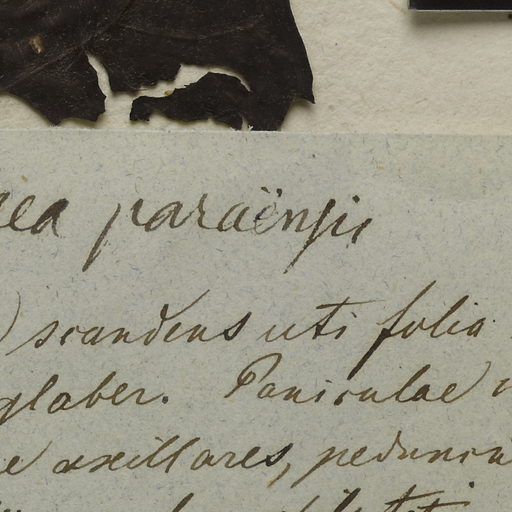 paraënsis
) scandens uti folia
glaber. Paniculae
axillares,